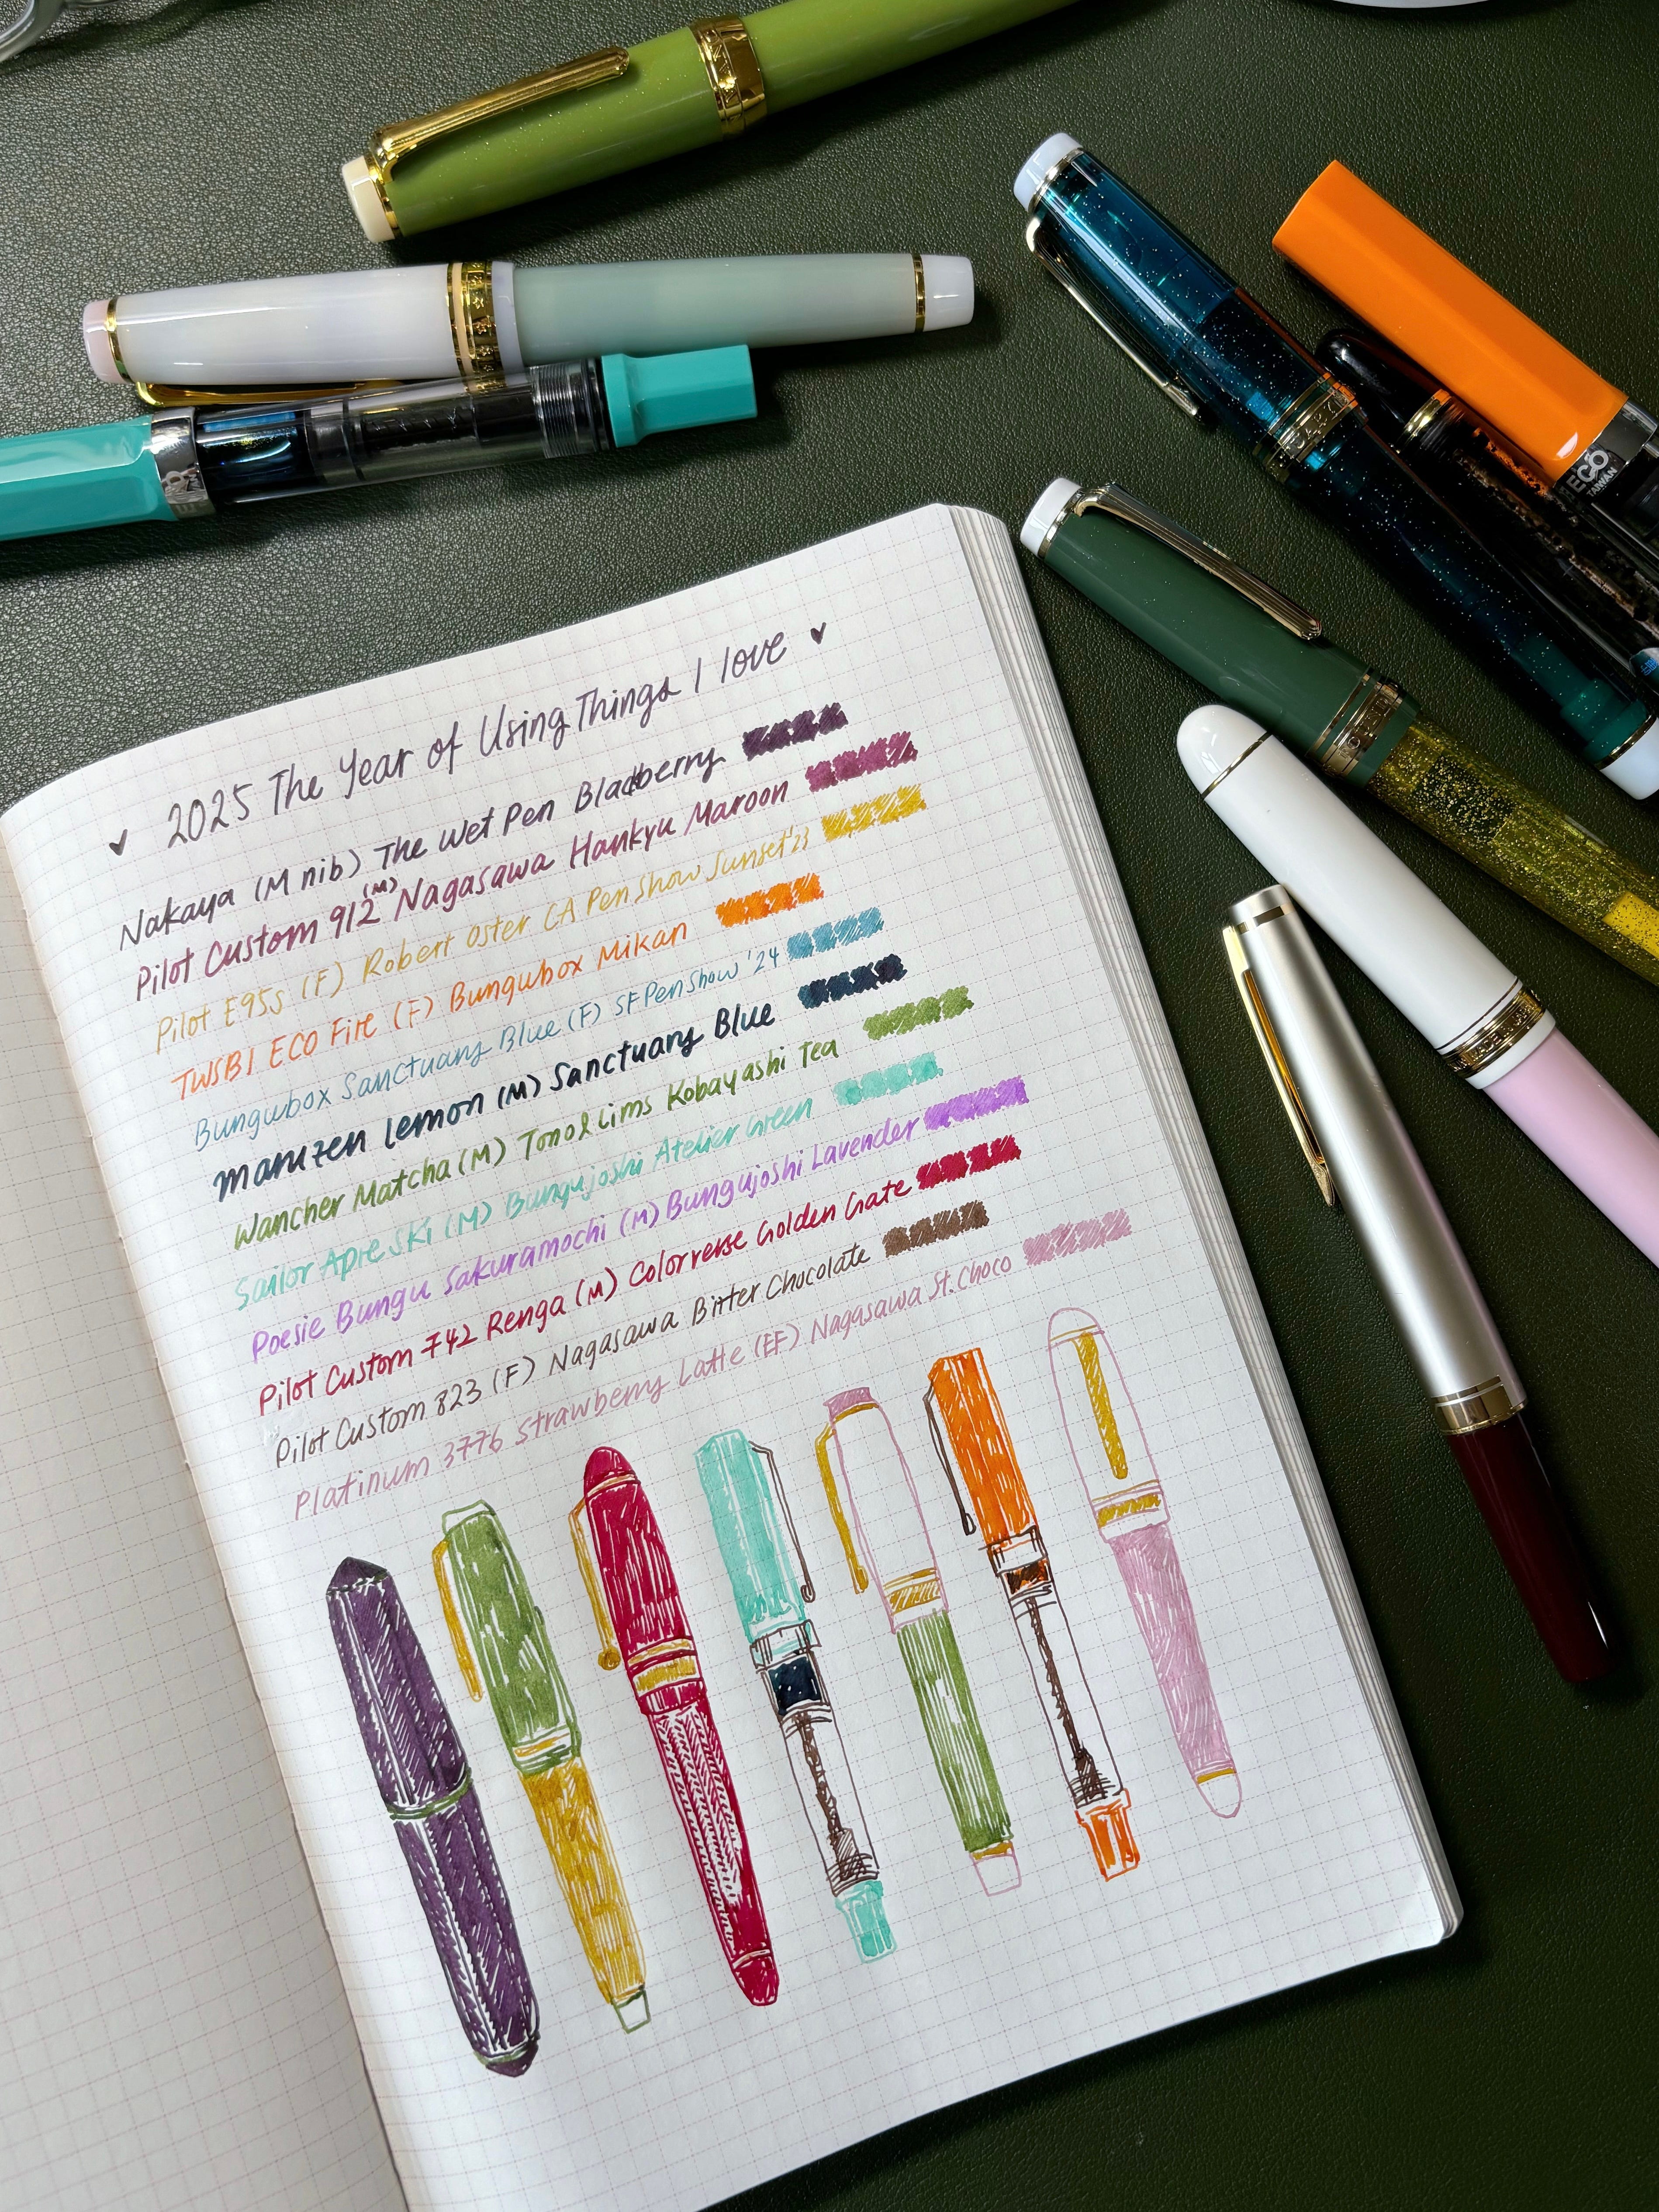 2025 The Year of Using Things I love
Nakaya (M nib) The Wet Pen Bladberry
Pilot Custom 912 (M) Nagasawa Hankyu Maroon
Pilot E95s (F) Robert Oster CA Pen Show Sunset '23
TWSBI ECO Fire (F) Bungubox Mikan
Bungubox Sanctuary Blue (F) SF Pen Show '24
Maruzen Lemon (M) Sanctuary Blue
Wancher Matcha (M) Tono & Lims Kobayashi Tea
Sailor Apre Ski (M) Bungujoshi Atelier Green
Poesie Bungu Sakuramochi (M) Bungujoshi Lavender
Pilot Custom 742 Renga (M) Colorverse Golden Gate
Pilot Custom 823 (F) Nagasawa Bitter Chocolate
Platinum 3776 Strawberry Latte (EF) Nagasawa St. Choco
ECO
TAIWAN